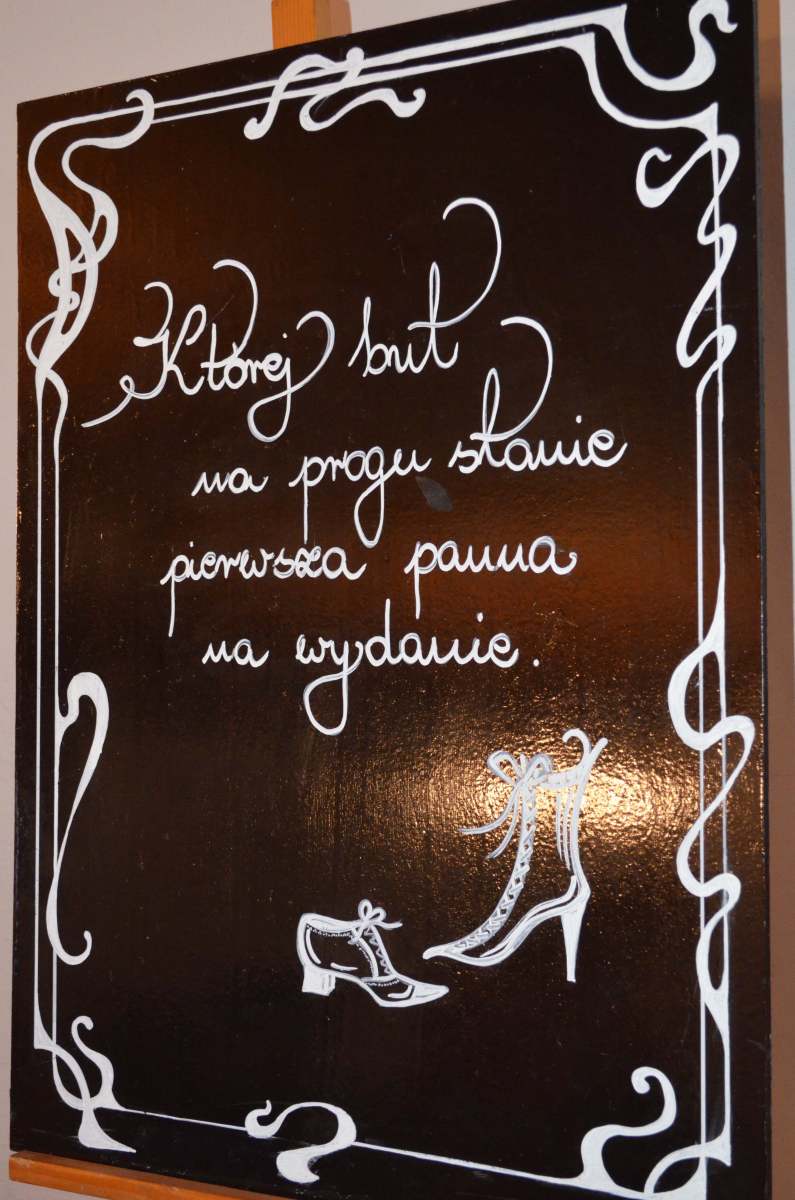 Której but
na progu stanie
pierwsza panna
na wydanie.